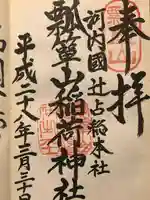 奉拝
河内國辻占総本社
瓢箪山稲荷神社
平成二十八年三月三十日